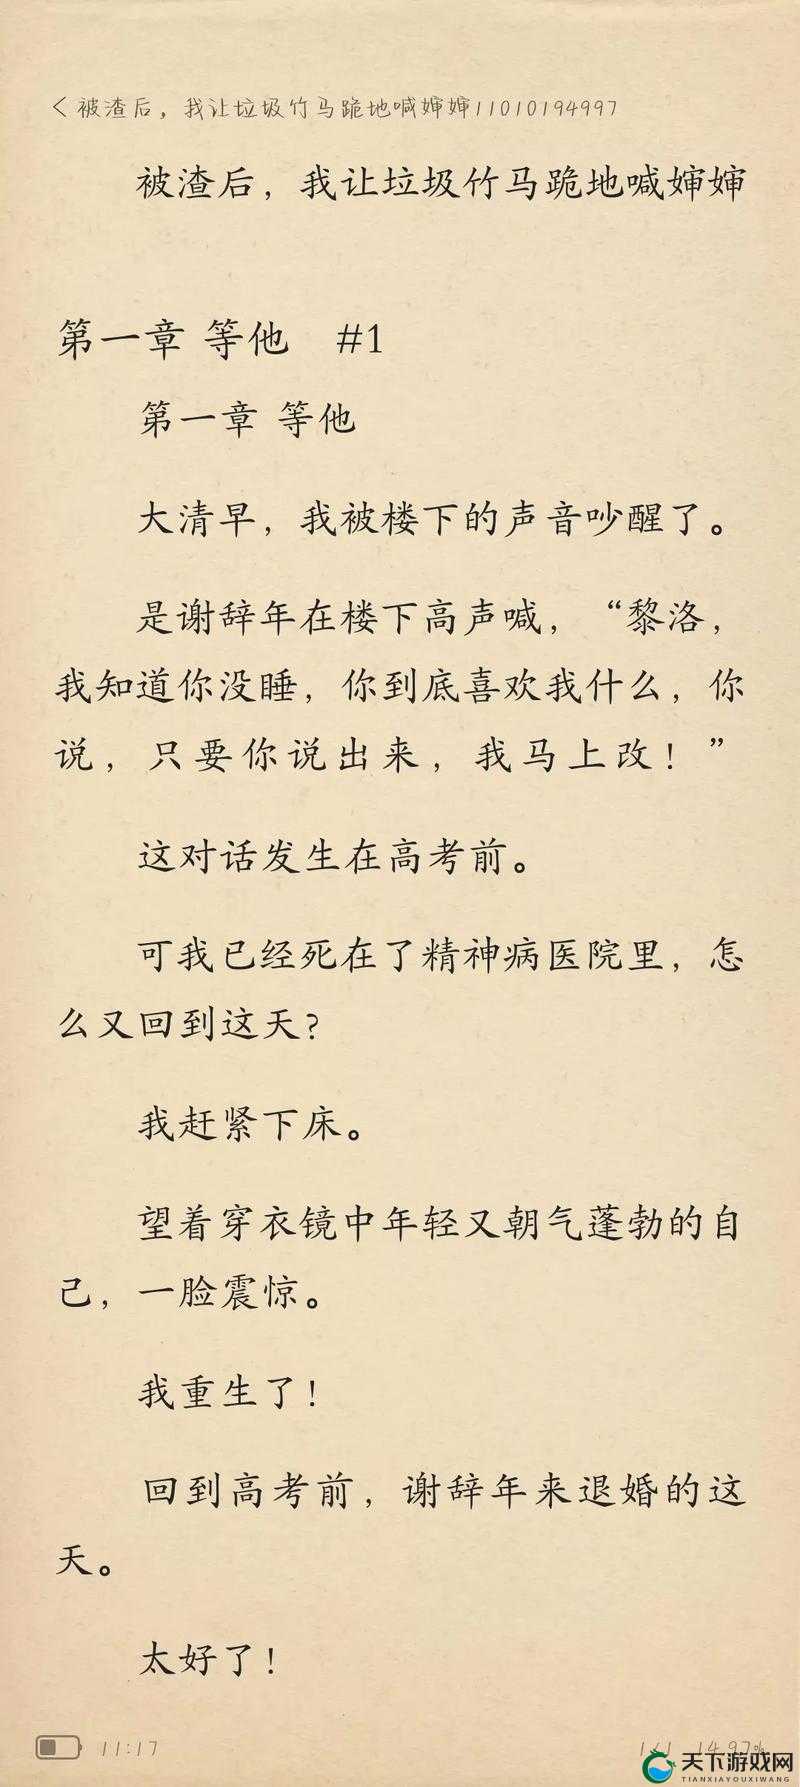 < 被渣后，我让垃圾竹马跪地喊婶婶11010194997
被渣后，我让垃圾竹马跪地喊婶婶
第一章 等他 #1
第一章 等他
大清早，我被楼下的声音吵醒了。
是谢辞年在楼下高声喊，“黎洛，
我知道你没睡，你到底喜欢我什么，你
说，只要你说出来，我马上改！”
这对话发生在高考前。
可我已经死在了精神病医院里，怎
么又回到这天？
我赶紧下床。
望着穿衣镜中年轻又朝气蓬勃的自
己，一脸震惊。
我重生了！
回到高考前，谢辞年来退婚的这
天。
太好了！
11:17
14.97%
天下游戏网
TIANXIAYOUXIWANG